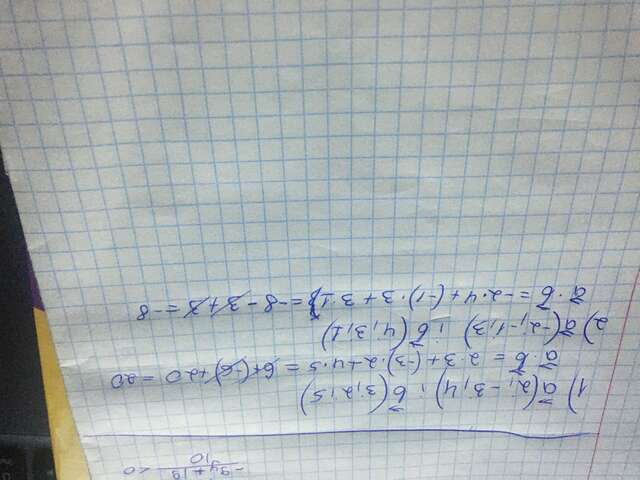 -9y+19
10
<0
1) a̅(2; -3; 4); b̅(3; 2; 5)
a̅·b̅ = 2·3+(-3)·2+4·5 = 6+(-6)+20 = 20
2) a̅(-2; -1; 3); b̅(4; 3; 1)
a̅·b̅ = -2·4+(-1)·3+3·1 = -8-3+3 = -8